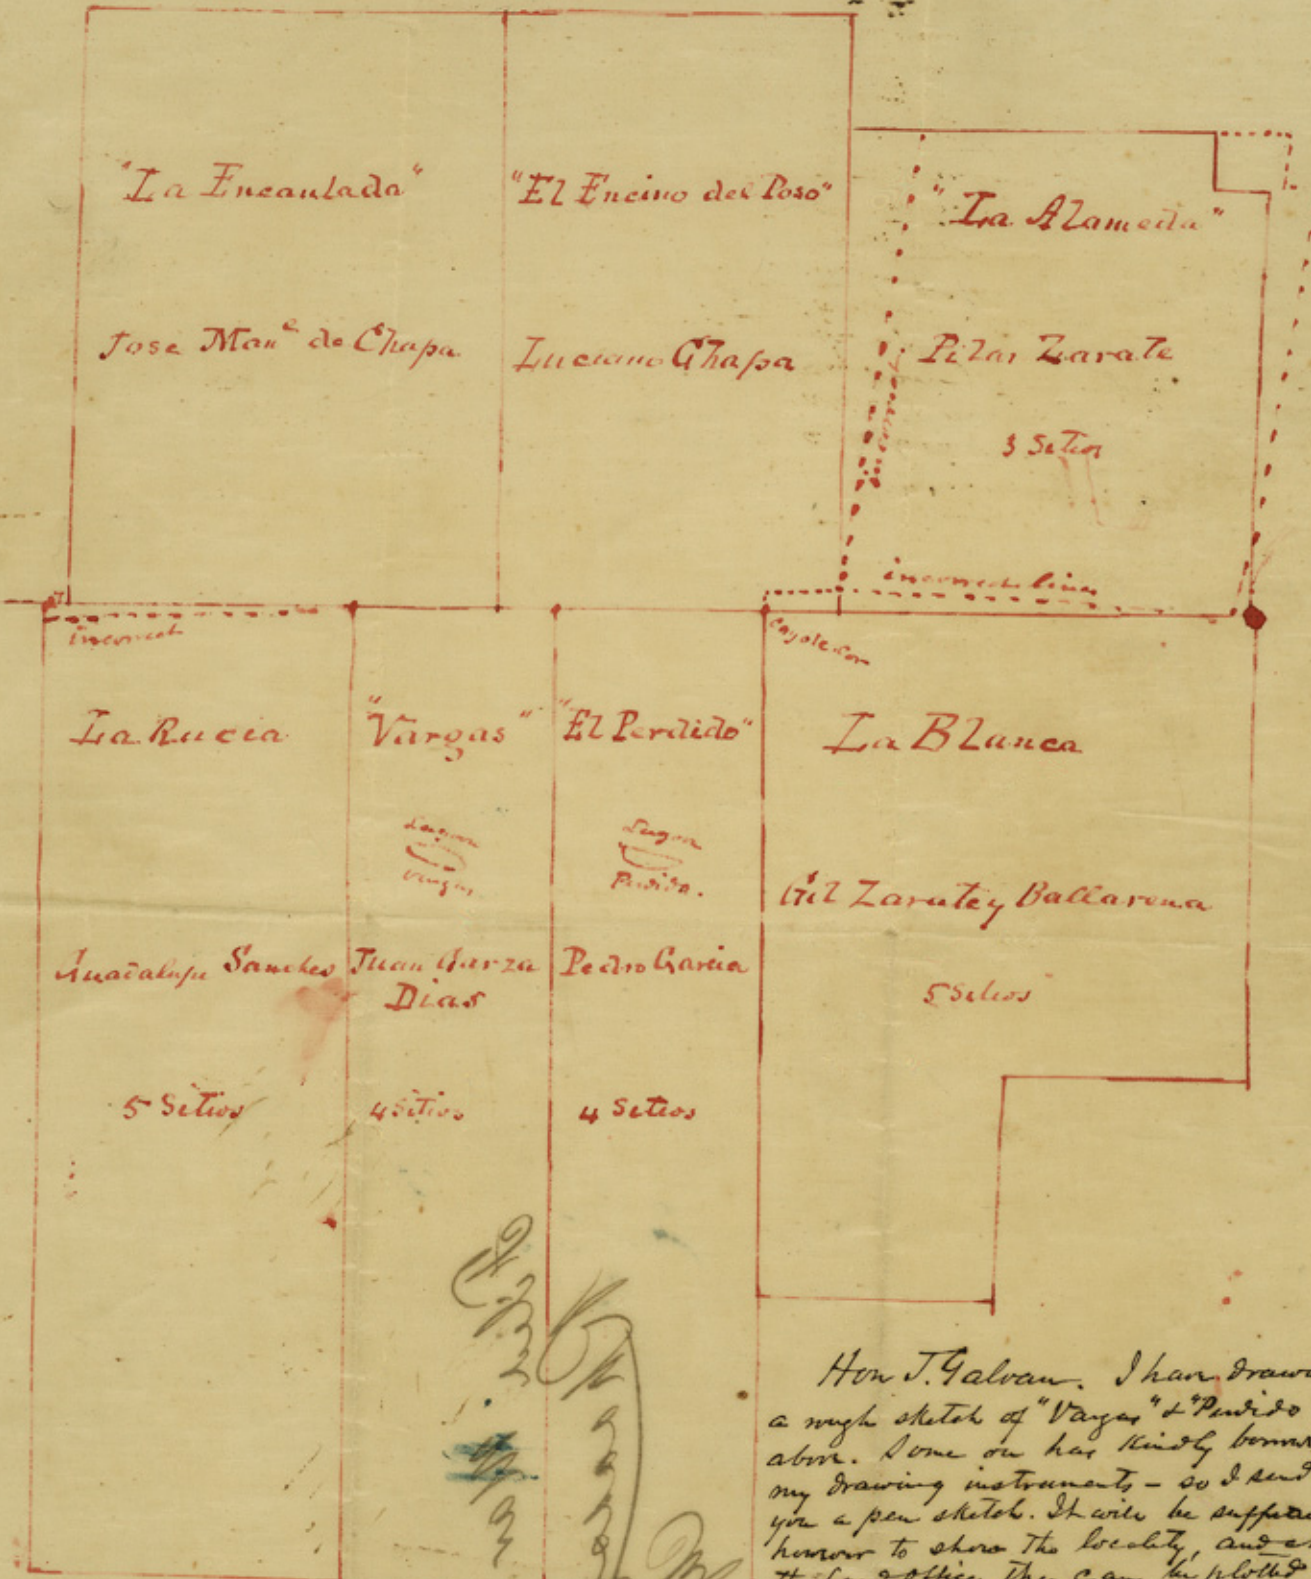 "La Encantada"
Jose Manl de Chapa
"El Encino del Poso"
Luciano Chapa
"La Alameda"
Pilar Zarate
3 Sitios
incorrect lines
incorrect
Coyote Cor
La Rucia
Guadalupe Sanches
5 Sitios
"Vargas"
Laguna
Vargas
Juan Garza
Dias
4 Sitios
"El Perdido"
Laguna
Perdida.
Pedro Garcia
4 Sitios
La Blanca
Gil Zarate y Ballarena
5 Sitios
Hon J. Galvan. I have drawn
a rough sketch of "Vargas" & "Perdido
above. Some on has kindly
my drawing instruments - so I send
you a pen sketch. It will be
however to show the locality, and
office they can be plotted